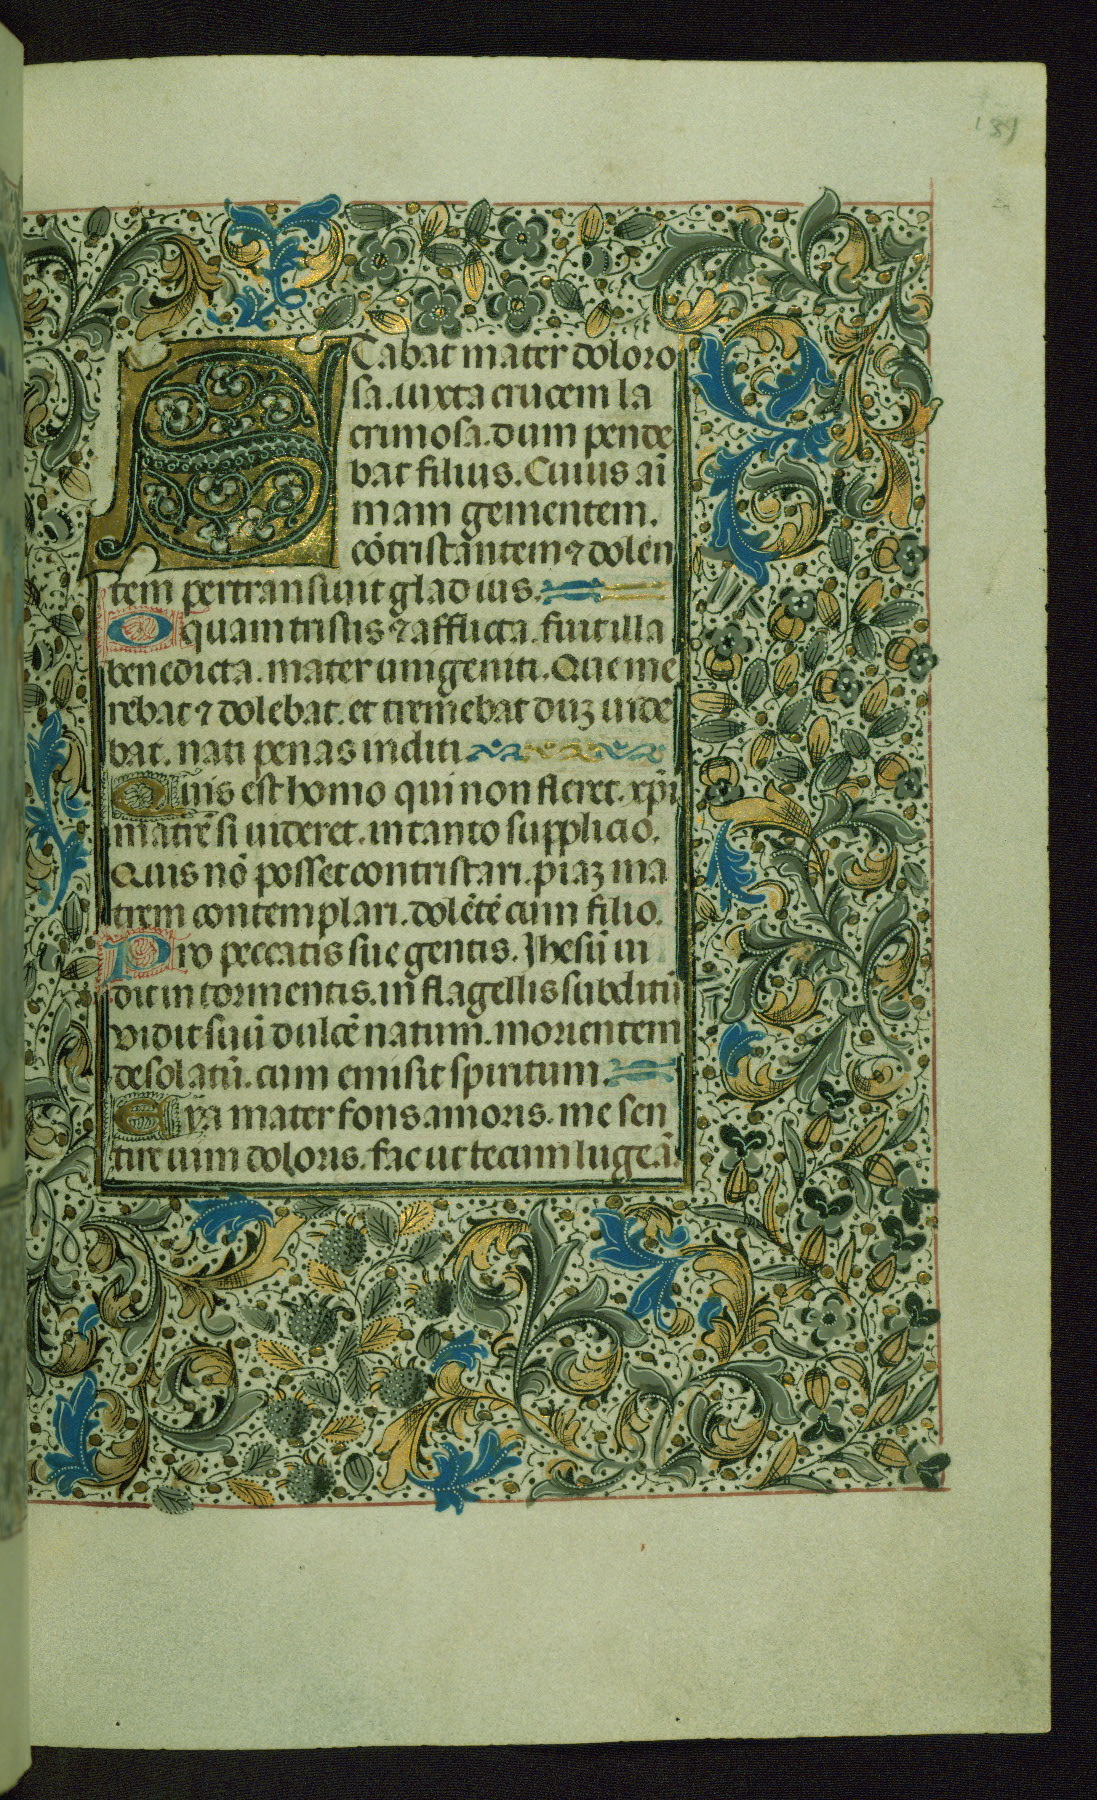 131
Stabat mater doloro
sa. iuxta crucem la
crimosa. dum pende
bat filius. Cuius aī
mam gementem.
cōtristantem ⁊ dolen
tem pertransiuit gladius.
O quam tristis ⁊ afflicta. fuit illa
benedicta. mater unigeniti. Que me
rebat ⁊ dolebat. et tremebat duꝫ uide
bat. nati penas incliti
Quis est homo qui non fleret. xp̄i
matrē si uideret. in tanto supplicio.
Quis nō posset contristari. piaꝫ ma
trem contemplari. dolētē cum filio.
Pro peccatis sue gentis. Jhesū ui
dit in tormentis. in flagellis subditū
vidit suū dulcē natum. morientem
desolatū. cum emisit spiritum.
Eya mater fons amoris. me sen
tire uim doloris. fac ut tecum lugeā.